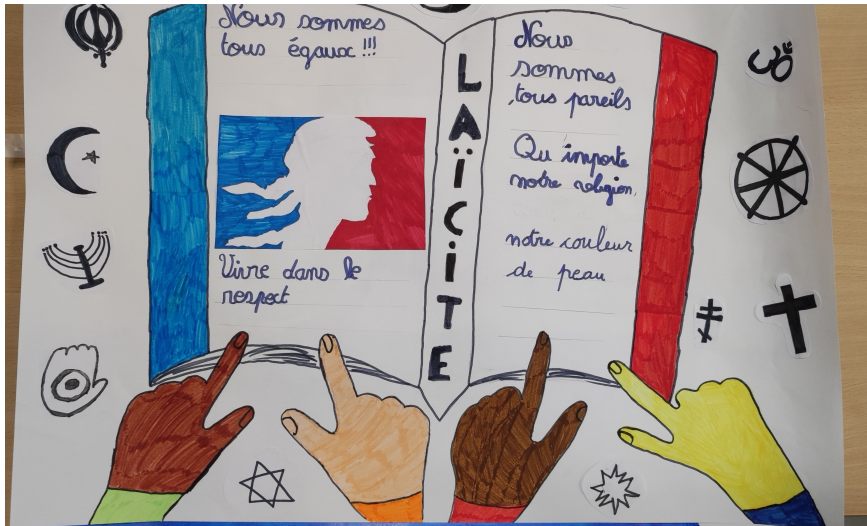 Nous sommes
tous égaux !!!
Vivre dans le
respect
LAÏCITE
Nous
sommes
tous pareils
Qu'importe
notre religion,
notre couleur
de peau